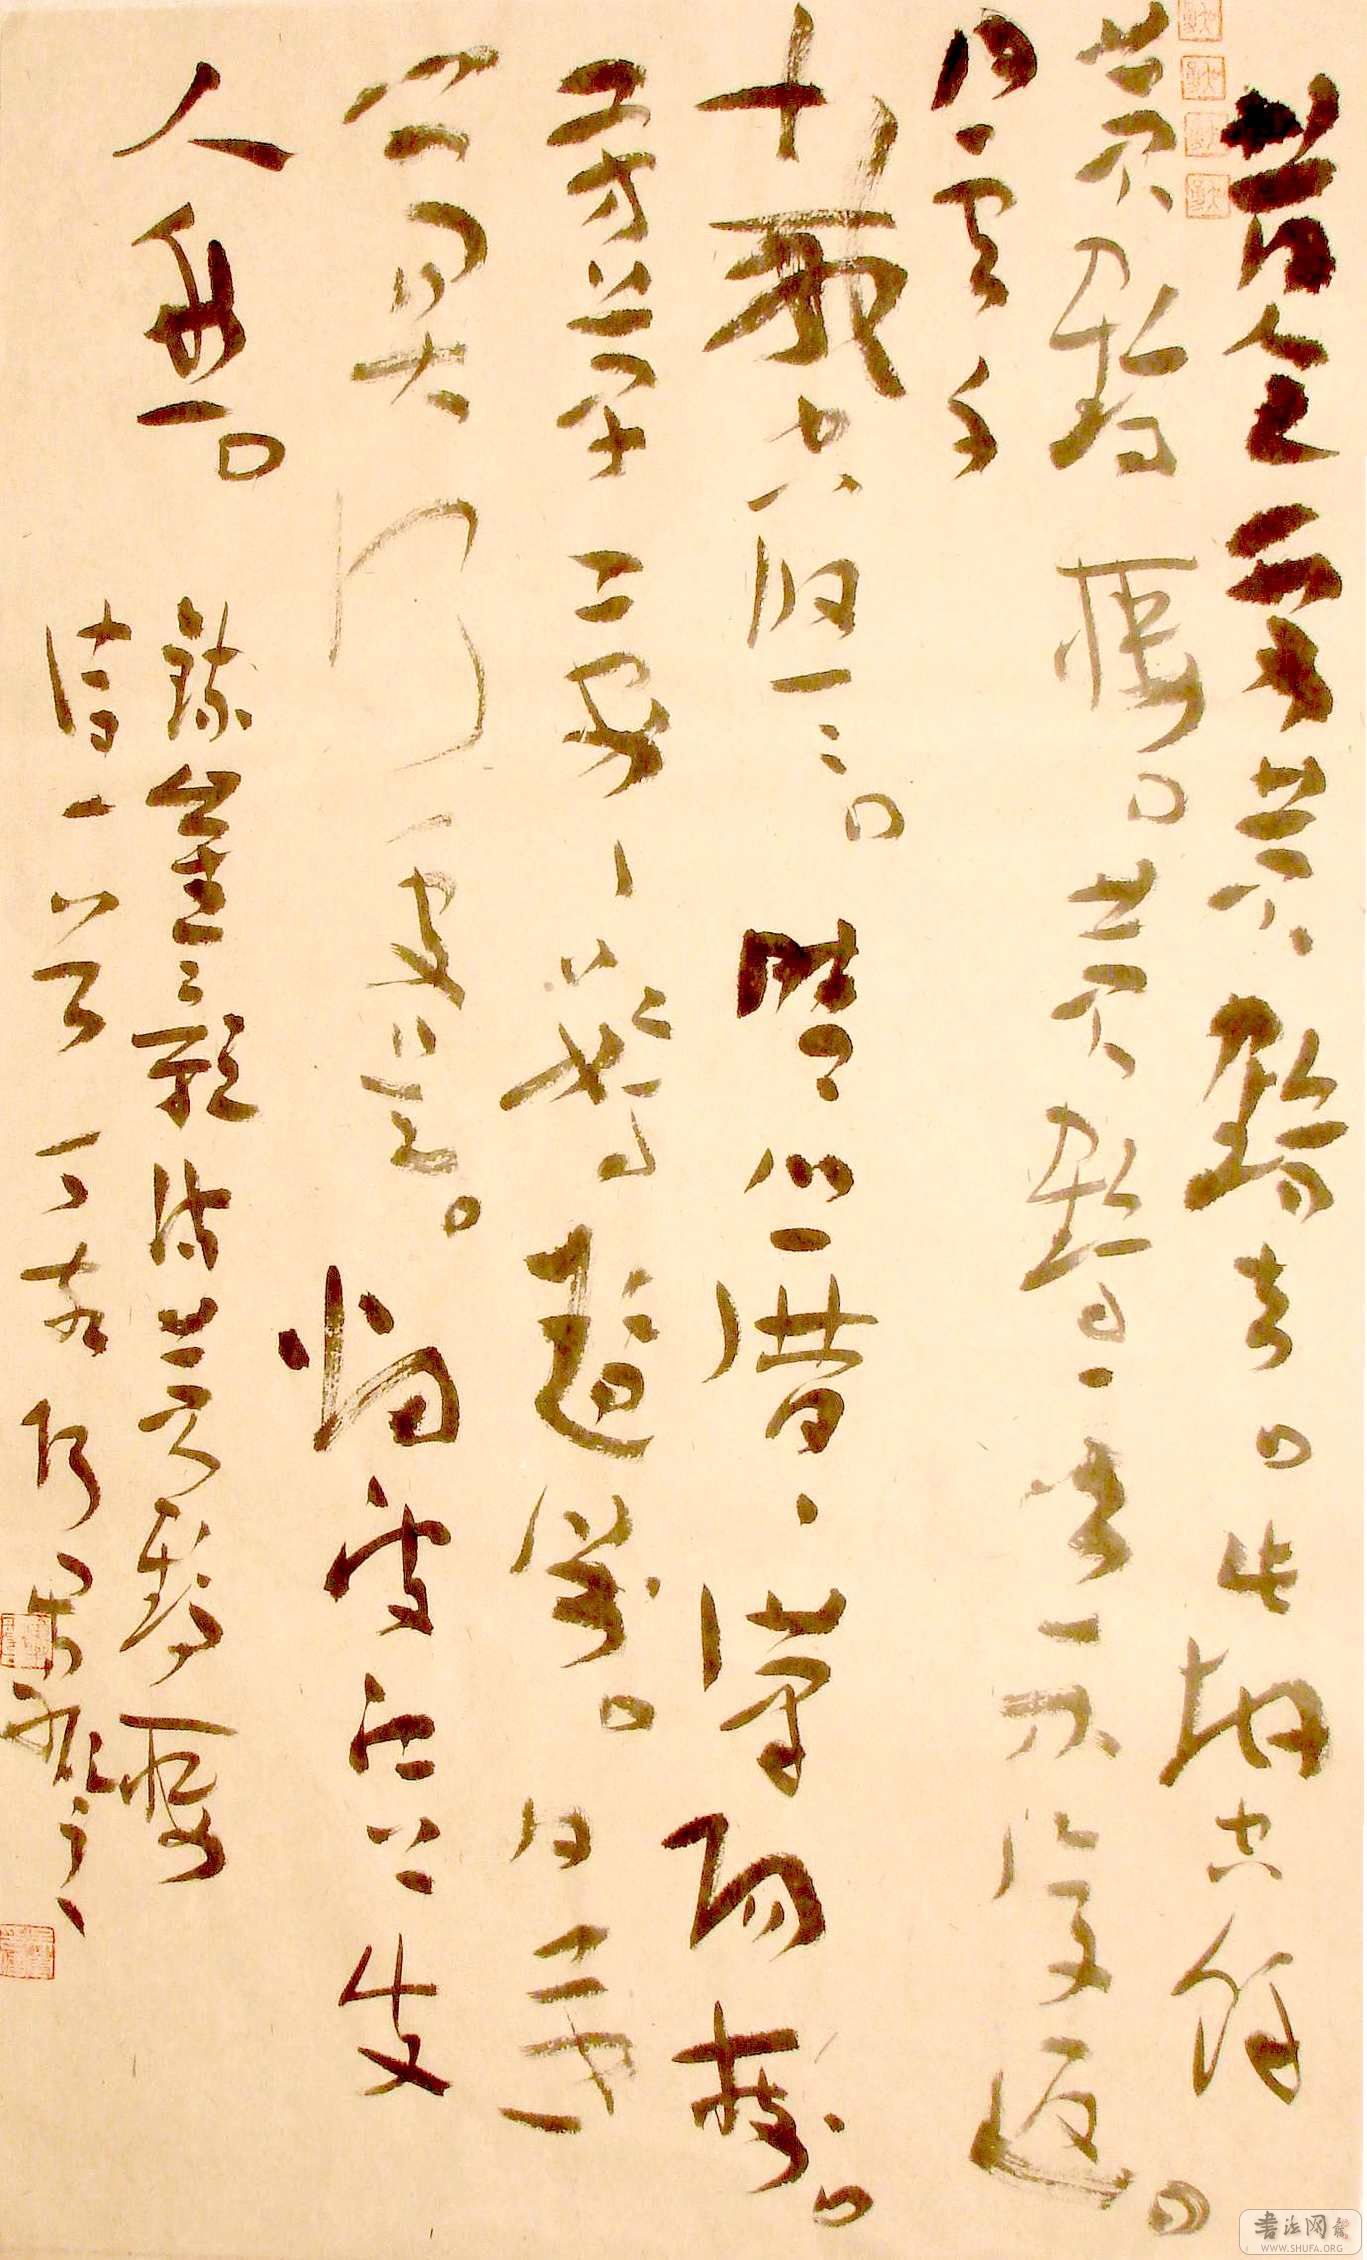 昔人已乘黄鹤去。此地空余
黄鹤楼。黄鹤一去不复返。
白云千
载空悠悠。晴川历历汉阳树。
芳草萋萋鹦鹉洲。日暮
乡关何处是。烟波江上使
人愁。
录崔颢诗黄鹤楼
诗一首
书法网
WWW.SHUFA.ORG